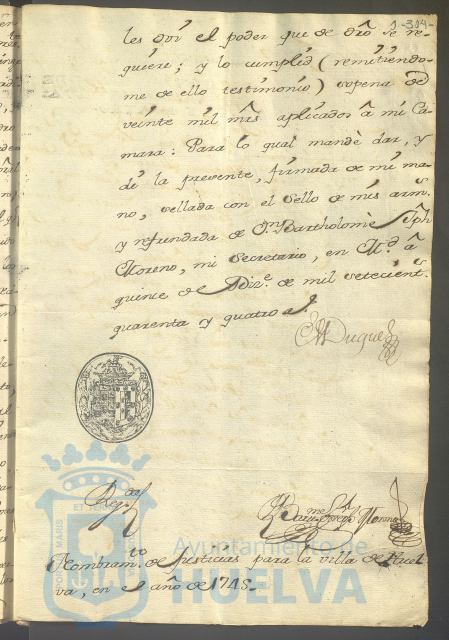 1-304-
les doi el poder que de dro̅ se re-
quiere; y lo cumplid (remitiendo-
me de ello testimonio) sopena de
veinte mil mrs̅ aplicados â mi Ca-
mara: Para lo qual mandè dar, y
dí la presente, firmada de mi ma-
no, sellada con el sello de mis arms.
y refrendada de Dn. Bartholomè Jph
Moreno, mi Secretario, en Md. â
quince de Dize. de mil setecients.
quarenta y quatro as.
El Duque
Regda
Barme Joseph Moreno
Nombramto. de justicias para la villa de Huel
va, en el año de 1745.
Ayuntamiento de
HUELVA